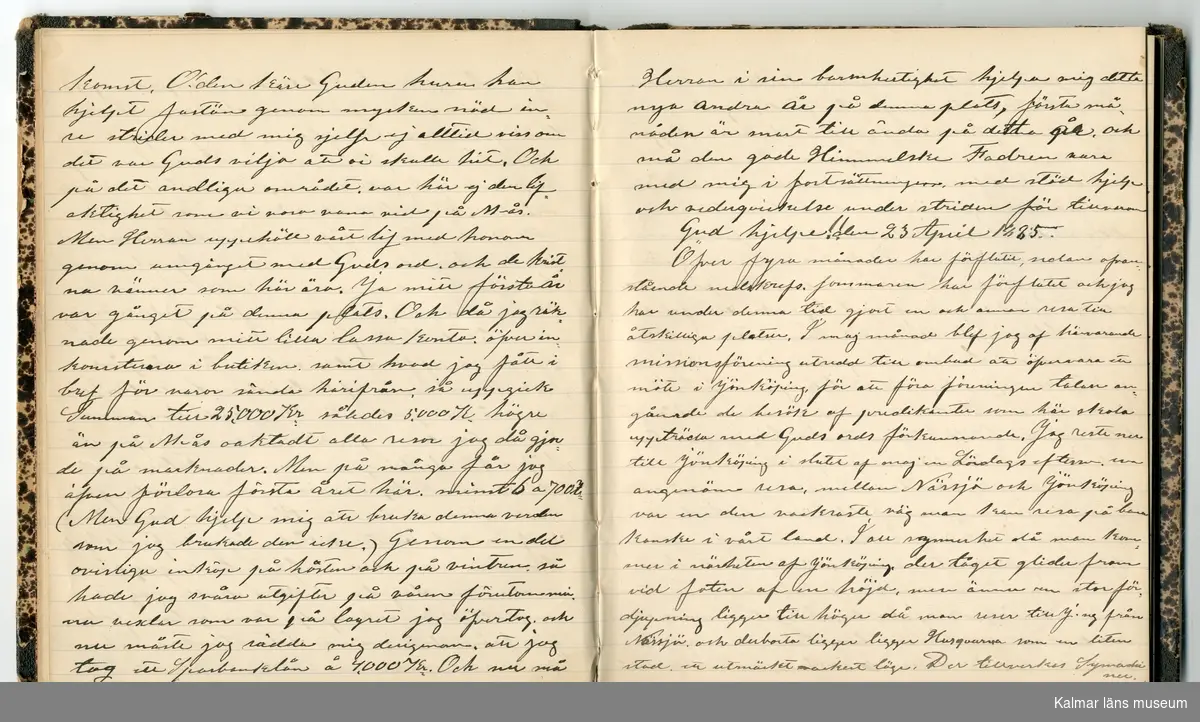 komst. O! den käre Guden huru han
hjelpt fastän genom mycken nöd in-
re strider med mig sjelf ej alltid viss om
det var Guds vilja att vi skulle hit. Och
på det andliga området var här ej den lif
aktighet som vi voro vana vid på M-ås.
Men Herran uppehöll vårt lif med honom
genom umgänget med Guds ord, och de krist-
na vänner som här äro. Ja mitt första år
var gånget på denna plats. Och då jag räk-
nade genom mitt lilla cassa konto, öfver in-
komsterna i butiken, samt hvad jag fått i
bref för varor sända härifrån, så uppgick
Summan till 25,000 Kr således 5000 Kr högre
än på M-ås oaktadt alla resor jag då gjor
de på marknader. Men på många får jag
äfven förlora första året här, minst 6 a 700 Kr
(Men Gud hjelpe mig att bruka denna verlden
som jag brukade den icke.) Genom en del
ovisliga inköp på hösten och på vintren, så
hade jag svåra utgifter på våren förutom min-
na vexlar som var på lagret jag öfvertog, och
nu måste jag rädda mig derigenom, att jag
tog ett Sparbankslån å 1000 Kr. Och nu må
Herran i sin barmhertighet hjelpa mig detta
nya andra år på denna plats, första må-
naden är snart till ända på detta år, och
må den gode Himmelske Fadren vara
med mig i fortsättningen, med stöd hjelp
och vederqvickelse under striden för tillvaron
Gud hjelpe!! den 23 April 1885.
Öfver fyra månader har förflutit, sedan ofvan-
stående nedskrefs. Sommaren har förflutet och jag
har under denna tid gjort en och annan resa till
åtskilliga platser. I maj månad blef jag af härvarande
missionsförening utsedd till ombud att öfvervara ett
möte i Jönköping, för att föra föreningens talan an-
gående de besök af predikanter som här skola
uppträda med Guds ords förkunnande. Jag reste ner
till Jönköping i slutet af maj en Lördags efterm. en
angenäm resa, mellan Nässjö och Jönköping
var en den vackraste väg man kan resa på ban
kanske i vårt land. I all synnerhet då man kom-
mer i närheten af Jönköping, der tåget glider fram
vid foten af en höjd, men ännu en stor för-
djupning ligger till höger då man reser till J-ng från
Nässjö, och derborta ligger ligger Husqvarna som en liten
stad, ett utmärkt vackert läge. Der tillverkas Symaski
ner.
Kalmar läns museum